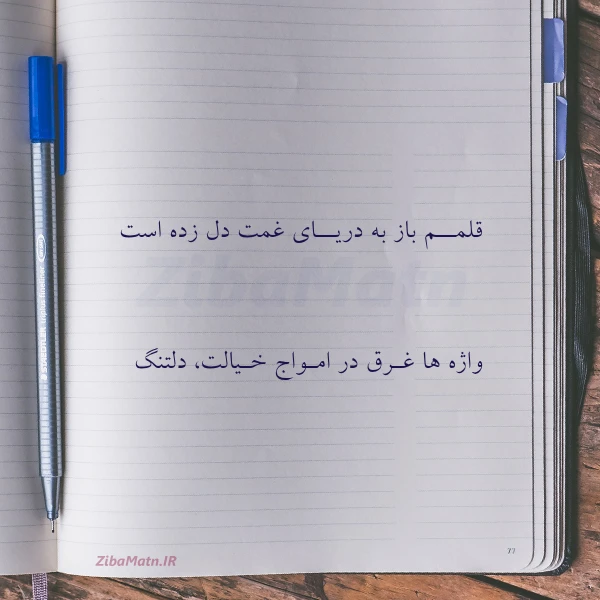 قلمم باز به دریای غمت دل زده است
ZibaMatn
واژه ها غرق در امواج خیالت، دلتنگ
77
ZibaMatn.IR